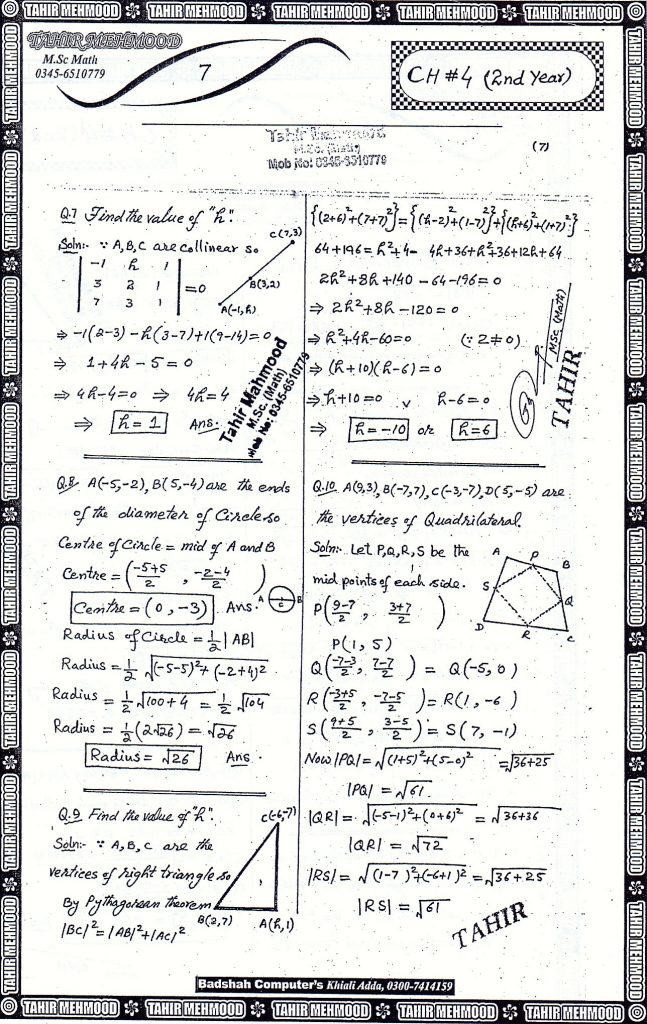 TAHIR MEHMOOD TAHIR MEHMOOD TAHIR MEHMOOD TAHIR MEHMOOD TAHIR MEHMOOD
TAHIR MEHMOOD
M.Sc Math
0345-6510779
7
CH #4 (2nd Year)
Tahir Mahmood
M.Sc. (Math)
Mob No: 0345-6510779
(7)
Q.7 Find the value of "h".
Soln:- ∵ A, B, C are collinear so
C(7,3)
B(3,2)
A(-1,h)
| -1 h 1 |
| 3 2 1 | = 0
| 7 3 1 |
⇒ -1(2-3) - h(3-7) + 1(9-14) = 0
⇒ 1+4h-5 = 0
⇒ 4h-4=0 ⇒ 4h=4
⇒ h = 1 Ans:-
Tahir Mahmood
M.Sc. (Math)
Mob No: 0345-6510779
Q.8 A(-5,-2), B(5,-4) are the ends
of the diameter of Circle. so
Centre of Circle = mid of A and B
Centre = (-5+5/2 , -2-4/2)
Centre = (0, -3) Ans.
A C B
Radius of Circle = 1/2 |AB|
Radius = 1/2 √(-5-5)²+(-2+4)²
Radius = 1/2 √100+4 = 1/2 √104
Radius = 1/2 (2√26) = √26
Radius = √26 Ans.
Q.9 Find the value of "h".
Soln:- ∵ A, B, C are the
vertices of right triangle so
By Pythagorean theorem
|BC|² = |AB|² + |AC|²
C(-6,-7)
B(2,7)
A(h,1)
{(2+6)²+(7+7)²} = {(h-2)²+(1-7)²}+{(h+6)²+(1+7)²}
64+196 = h²+4- 4h+36+h²+36+12h+64
2h²+8h+140-64-196=0
⇒ 2h²+8h-120=0
⇒ h²+4h-60=0 (∵ 2≠0)
⇒ (h+10)(h-6) = 0
⇒ h+10=0 v h-6=0
⇒ h=-10 or h=6
MSc (Math)
TAHIR
Q.10 A(9,3), B(-7,7), C(-3,-7), D(5,-5) are
the vertices of Quadrilateral.
Soln:- Let P,Q,R,S be the
mid points of each side.
A P B
S Q
D R C
P(9-7/2 , 3+7/2)
P(1, 5)
Q(-7-3/2, 7-7/2) = Q(-5, 0)
R(-3+5/2, -7-5/2) = R(1, -6)
S(9+5/2, 3-5/2) = S(7, -1)
Now |PQ| = √(1+5)²+(5-0)² = √36+25
|PQ| = √61
|QR| = √(-5-1)²+(0+6)² = √36+36
|QR| = √72
|RS| = √(1-7)²+(-6+1)² = √36+25
|RS| = √61
TAHIR
Badshah Computer's Khiali Adda, 0300-7414159
TAHIR MEHMOOD TAHIR MEHMOOD TAHIR MEHMOOD TAHIR MEHMOOD TAHIR MEHMOOD